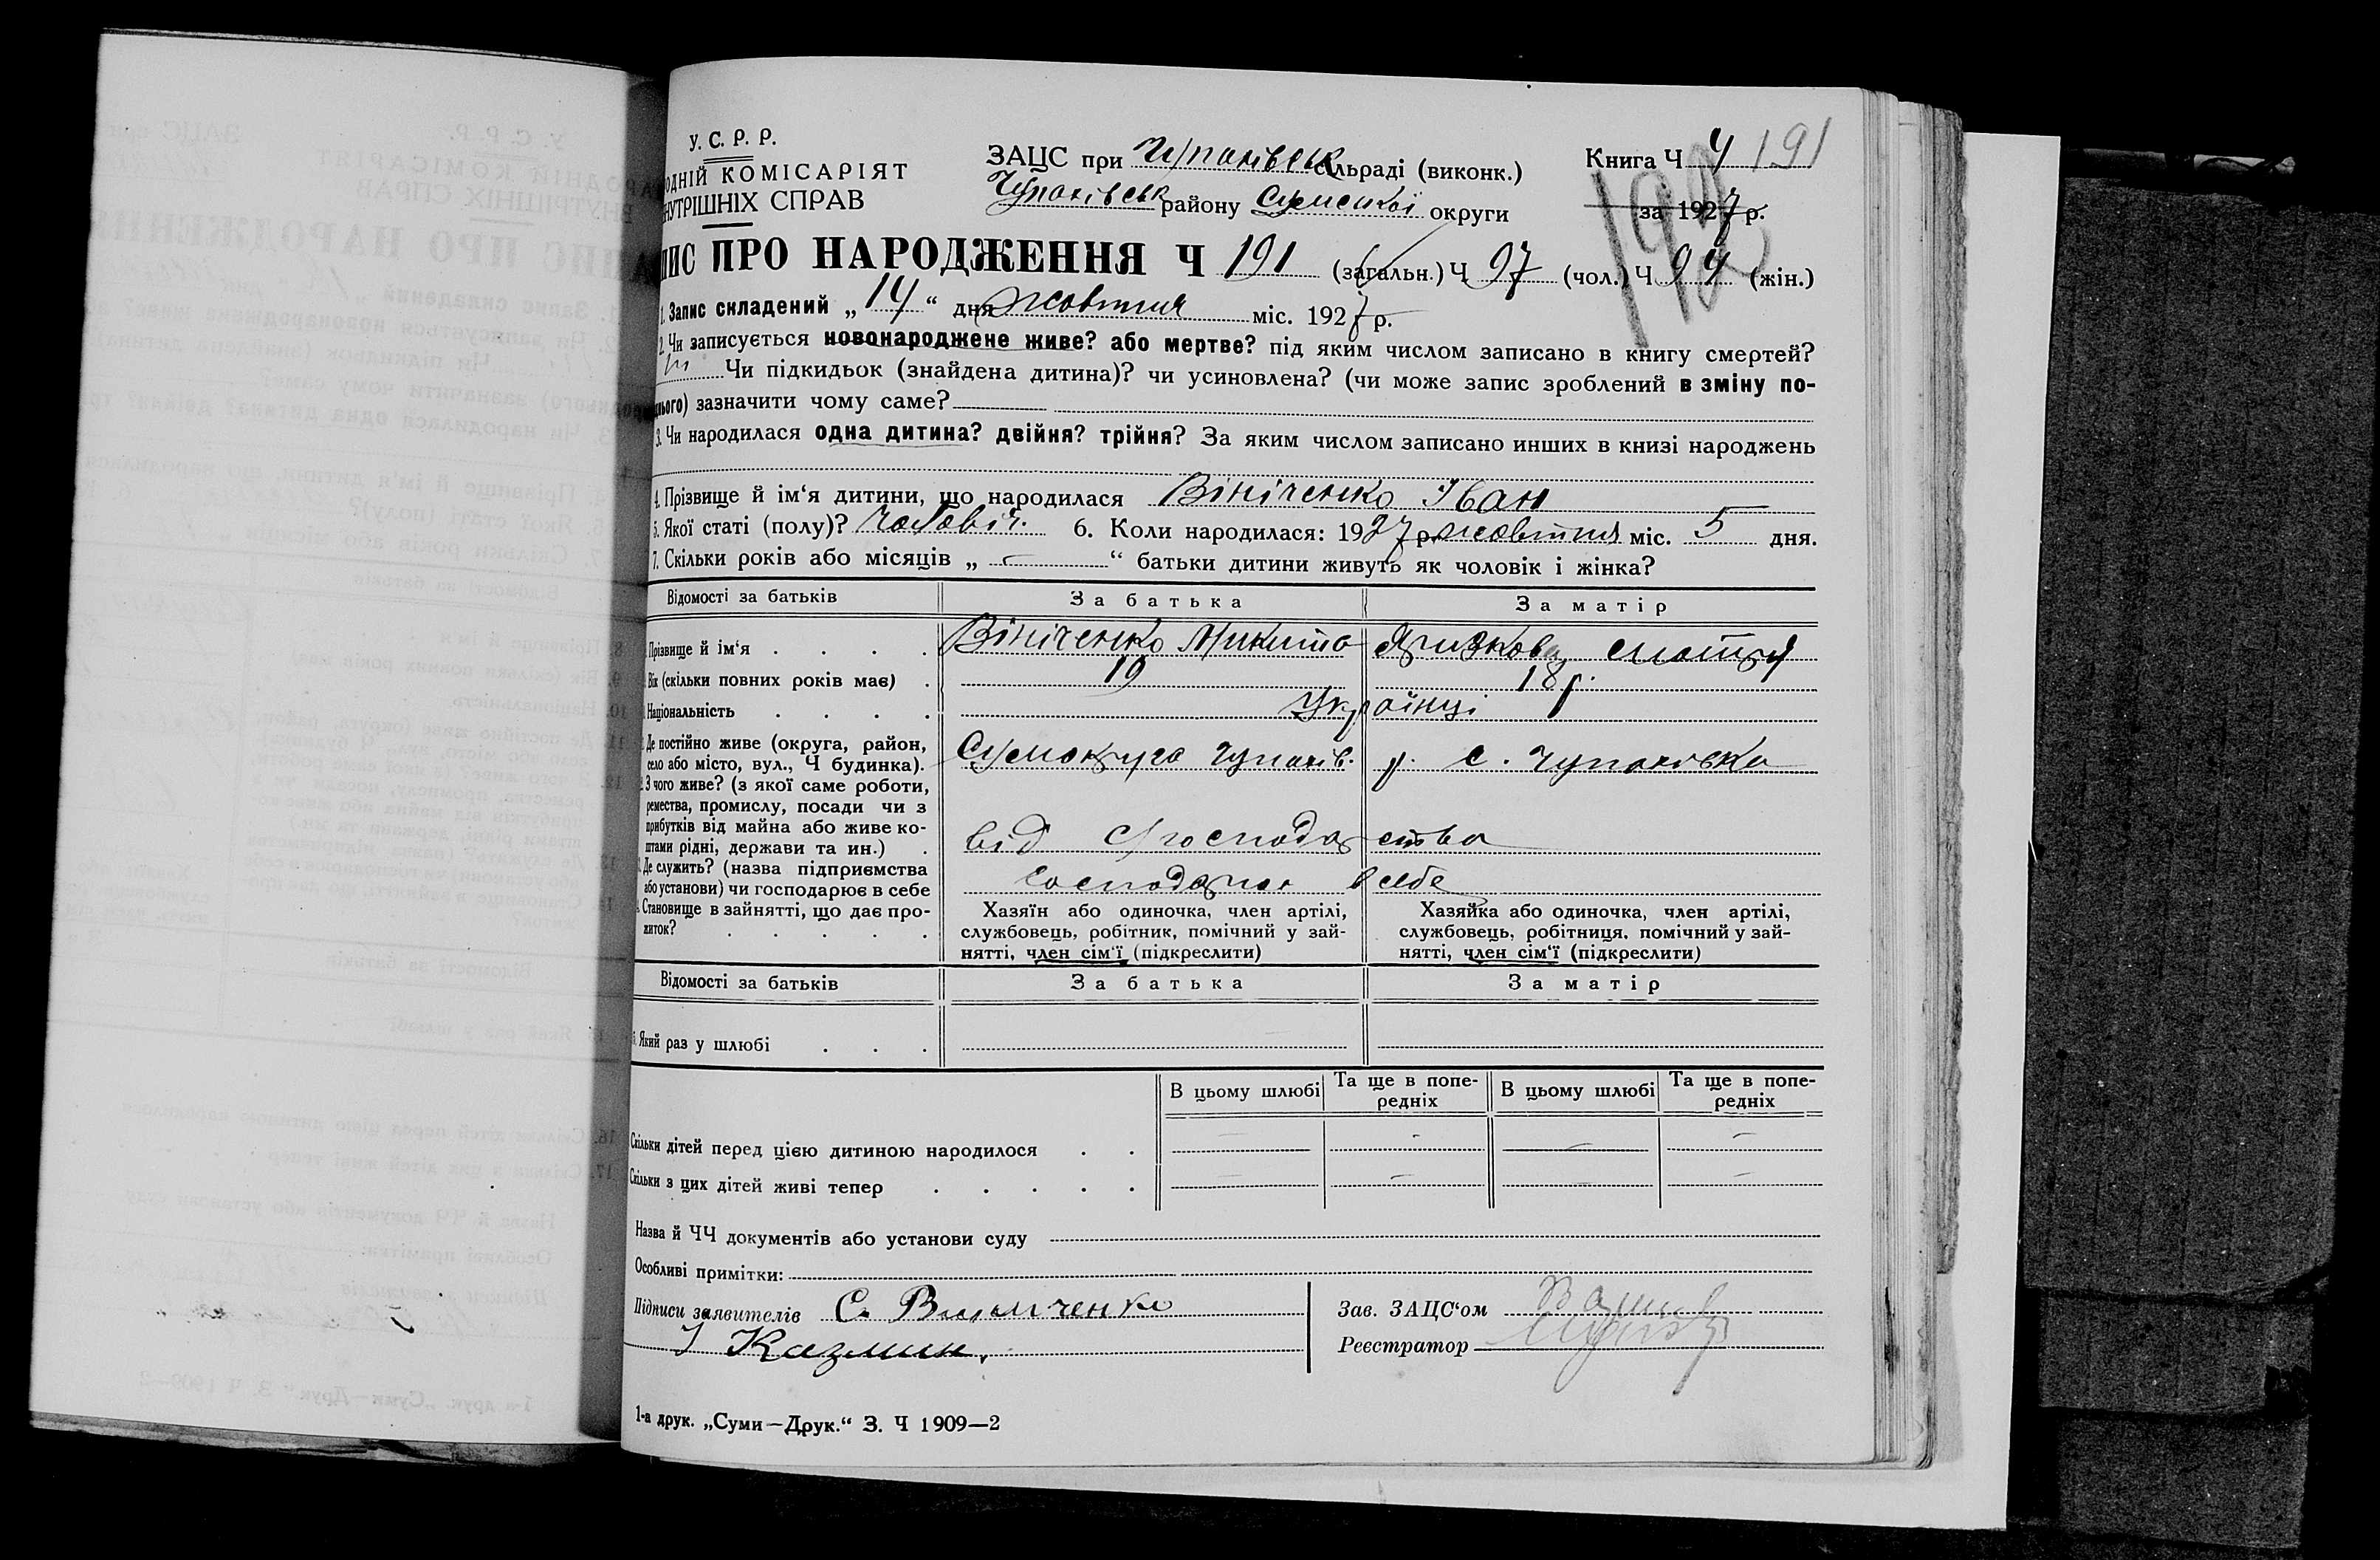 У. С. Р. Р.
ОДНІЙ КОМІСАРІЯТ
НУТРІШНІХ СПРАВ
ЗАЦС при Чупахівськ сільраді (виконк.)
Чупахівськ району Сумської округи
Книга Ч 4 191
192
за 1927 р.
ПИС ПРО НАРОДЖЕННЯ Ч 191 (загальн.) Ч 97 (чол.) Ч 94 (жін.)
1. Запис складений „14“ дня жовтня міс. 1927 р.
2. Чи записується новонароджене живе? або мертве? під яким числом записано в книгу смертей?
ні Чи підкидьок (знайдена дитина)? чи усиновлена? (чи може запис зроблений в зміну по-
нього) зазначити чому саме?
3. Чи народилася одна дитина? двійня? трійня? За яким числом записано инших в книзі народжень
4. Прізвище й ім‘я дитини, що народилася Вініченко Іван
5. Якої статі (полу)? чоловіч. 6. Коли народилася: 1927 р. жовтня міс. 5 дня.
7. Скільки років або місяців „ — “ батьки дитини живуть як чоловік і жінка?
Відомості за батьків За батька За матір
Прізвище й ім‘я . . . . Вініченко Микита Язикова Мотря
Вік (скільки повних років має) . 19 18 р.
Національність . . . . Українці
Де постійно живе (округа, район,
село або місто, вул., Ч будинка). Сумокруга Чупахів. р. с. Чупахівка
З чого живе? (з якої саме роботи,
ремества, промислу, посади чи з
прибутків від майна або живе ко-
штами рідні, держави та ин.) . від Господарства
Де служить? (назва підприємства
або установи) чи господарює в себе в себе
Становище в зайнятті, що дає про-
житок? . . . . .
Хазяїн або одиночка, член артілі,
службовець, робітник, помічний у зай-
нятті, член сім‘ї (підкреслити)
Хазяйка або одиночка, член артілі,
службовець, робітниця, помічний у зай-
нятті, член сім‘ї (підкреслити)
Відомості за батьків За батька За матір
Який раз у шлюбі . . .
В цьому шлюбі Та ще в попе-
редніх В цьому шлюбі Та ще в попе-
редніх
Скільки дітей перед цією дитиною народилося . . — — — —
Скільки з цих дітей живі тепер . . . . . — — — —
Назва й ЧЧ документів або установи суду
Особливі примітки:
Підписи заявителів
І Казмин
Зав. ЗАЦС‘ом
Реєстратор
1-а друк. „Суми—Друк.“ З. Ч 1909—2